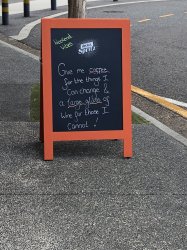 Weekend
vibes
Give me coffee
for the things I
can change &
a large glass of
wine for those I
cannot !